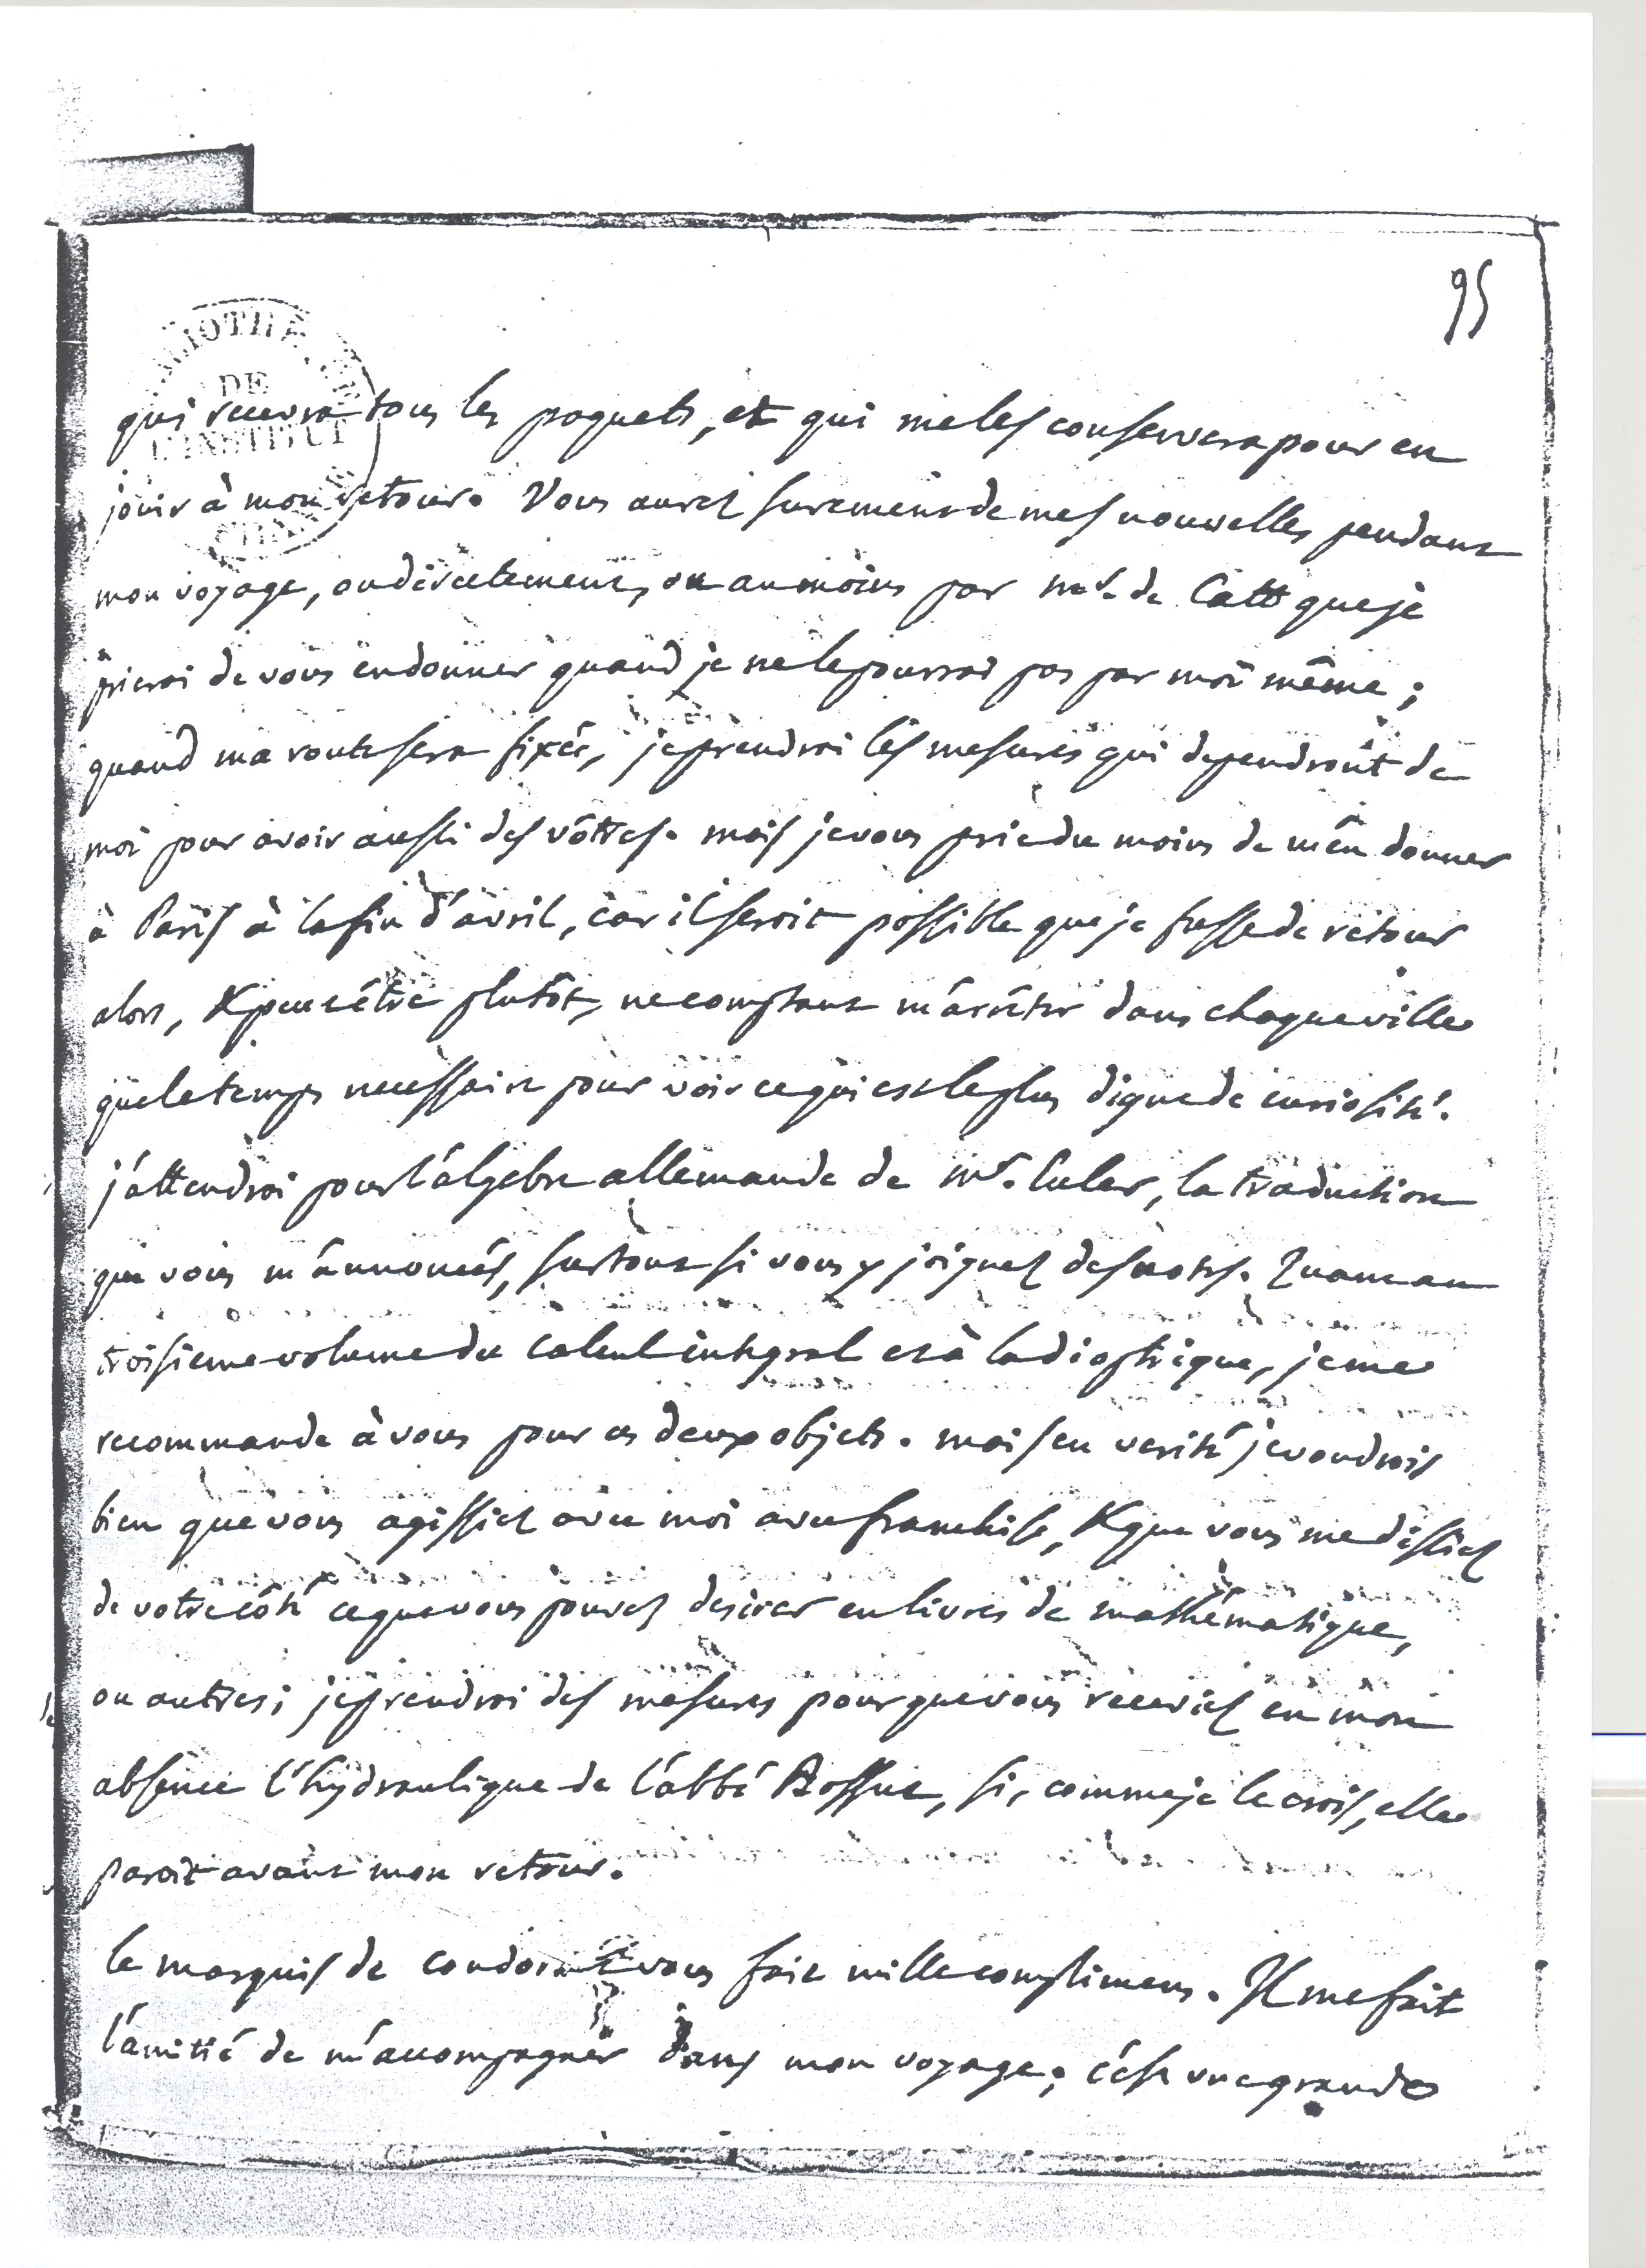 95
BIBLIOTHE
DE
L'INSTITUT
qui recevra tous les paquets, et qui me les conservera pour en
jouir à mon retour. Vous aurez surement de mes nouvelles pendant
mon voyage, ou directement, ou au moins par mr. de Catt que je
prierai de vous en donner quand je ne le pourrai pas par moi même ;
quand ma route sera fixée, je prendrai les mesures qui dependront de
moi pour avoir aussi des vôtres. mais je vous prie du moins de m'en donner
à Paris à la fin d'avril, car il seroit possible que je fusse de retour
alors, & peut être plutôt, ne comptant m'arrêter dans chaque ville
que le temps necessaire pour voir ce qui est le plus digne de curiosité.
j'attendrai pour l'algebre allemande de mr. Euler, la traduction
que vous m'annoncés, surtout si vous y joignez des notes. Quant au
troisieme volume du calcul integral et à la dioptrique, je me
recommande à vous pour ces deux objets. mais en verité je voudrois
bien que vous agissiez avec moi avec franchise, & que vous me dissiez
de votre côté ce que vous pouvez desirer en livres de mathématique,
ou autres ; je prendrai des mesures pour que vous receviez en mon
absence l'hydraulique de l'abbé Bossut, si, comme je le crois, elle
paroit avant mon retour.
le marquis de condorcet vous fait mille complimens. Il me fait
l'amitié de m'accompagner dans mon voyage ; c'est une grande